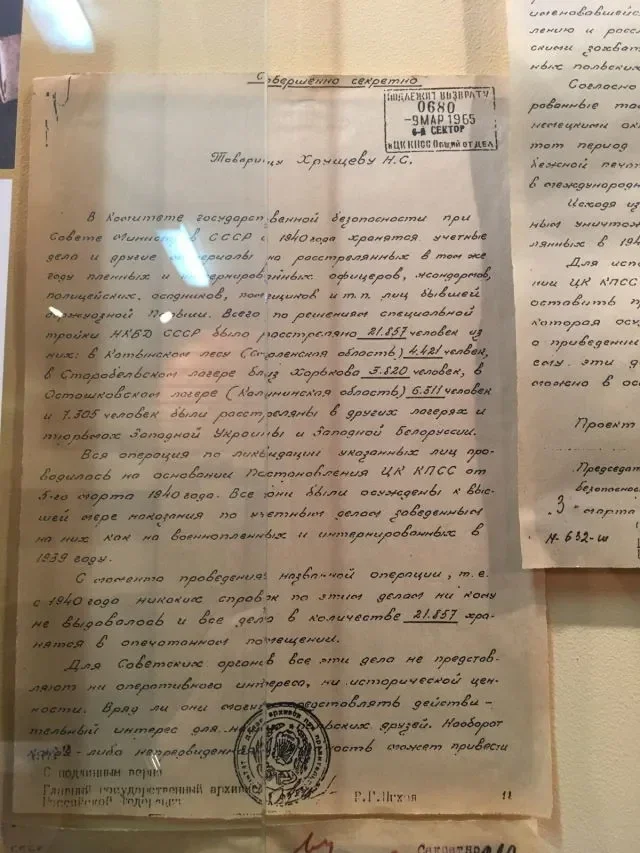 Совершенно секретно
ПОДЛЕЖИТ ВОЗВРАТУ
0680
-9 МАР 1965
6-й СЕКТОР
в ЦК КПСС Общий отдел
Товарищу Хрущеву Н.С.
В Комитете государственной безопасности при
Совете Министров СССР с 1940 года хранятся учетные
дела и другие материалы на расстрелянных в том же
году пленных и интернированных офицеров, жандармов,
полицейских, осадников, помещиков и т.п. лиц бывшей
буржуазной Польши. Всего по решениям специальной
тройки НКВД СССР было расстреляно 21.857 человек из
них: в Катынском лесу (Смоленская область) 4.421 человек,
в Старобельском лагере близ Харькова 3.820 человек, в
Осташковском лагере (Калининская область) 6.311 человек
и 7.305 человек были расстреляны в других лагерях и
тюрьмах Западной Украины и Западной Белоруссии.
Вся операция по ликвидации указанных лиц про-
водилась на основании Постановления ЦК КПСС от
5-го марта 1940 года. Все они были осуждены к выс-
шей мере наказания по учетным делам заведенным
на них как на военнопленных и интернированных в
1939 году.
С момента проведения названной операции, т.е.
с 1940 года никаких справок по этим делам ни кому
не выдавалось и все дела в количестве 21.857 хра-
нятся в опечатанном помещении.
Для Советских органов все эти дела не представ-
ляют ни оперативного интереса, ни исторической цен-
ности. Вряд ли они могут представлять действи-
тельный интерес для на польских друзей. Наоборот
-либо непредвиденн ность может привести
С подлинным верно
Главный государственный архивис
Российской Федерации
именовавшейс
лению и рассл
скими захват
ных польских
Согласно
рованные та
немецкими ок
тот период
бежной печат
в международн
Исходя из
ным уничтож
лянных в 194
Для испо
нии ЦК КПСС
оставить п
которая осу
о приведении
сему эти д
можно в ос
Проект
Председат
безопаснос
"3" марта
Н-632-ш
Секретно